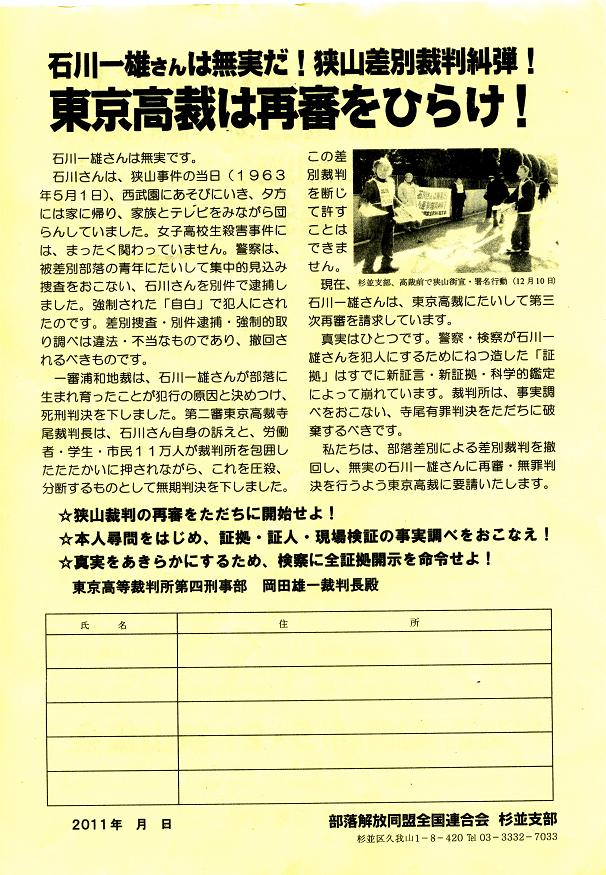 石川一雄さんは無実だ！狭山差別裁判糾弾！
東京高裁は再審をひらけ！
石川一雄さんは無実です。
石川さんは、狭山事件の当日（１９６３
年５月１日）、西武園にあそびにいき、夕方
には家に帰り、家族とテレビをみながら団
らんしていました。女子高校生殺害事件に
は、まったく関わっていません。警察は、
被差別部落の青年にたいして集中的見込み
捜査をおこない、石川さんを別件で逮捕し
ました。強制された「自白」で犯人にされ
たのです。差別捜査・別件逮捕・強制的取
り調べは違法・不当なものであり、撤回さ
れるべきものです。
一審浦和地裁は、石川一雄さんが部落に
生まれ育ったことが犯行の原因と決めつけ、
死刑判決を下しました。第二審東京高裁寺
尾裁判長は、石川さん自身の訴えと、労働
者・学生・市民１１万人が裁判所を包囲し
たたたかいに押されながら、これを圧殺、
分断するものとして無期判決を下しました。
この差
別裁判
を断じ
て許す
ことは
できま
せん。
杉並支部、高裁前で狭山街宣・署名行動（12月10日）
現在、
石川一雄さんは、東京高裁にたいして第三
次再審を請求しています。
真実はひとつです。警察・検察が石川一
雄さんを犯人にするためにねつ造した「証
拠」はすでに新証言・新証拠・科学的鑑定
によって崩れています。裁判所は、事実調
べをおこない、寺尾有罪判決をただちに破
棄するべきです。
私たちは、部落差別による差別裁判を撤
回し、無実の石川一雄さんに再審・無罪判
決を行うよう東京高裁に要請いたします。
☆狭山裁判の再審をただちに開始せよ！
☆本人尋問をはじめ、証拠・証人・現場検証の事実調べをおこなえ！
☆真実をあきらかにするため、検察に全証拠開示を命令せよ！
東京高等裁判所第四刑事部　岡田雄一裁判長殿
氏　名　住　所
2011年　月　日
部落解放同盟全国連合会　杉並支部
杉並区久我山1－8－420 Tel 03－3332－7033